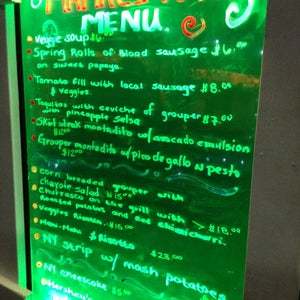 MENU.
Veggie soup $6.
Spring Rolls of Blood sausage $6.00
on sweet papaya.
Tomato fill with local sausage $8.00
& veggies.
Taquitos with ceviche of grouper $7.00
with pineapple salsa
Skirt steak montadito w/ avocado emulsion
$11.00
Grouper montadito w/ pico de gallo n pesto
$12.00
corn breaded grouper with
chayote salad $15.00
churrasco on the grill with
Roasted potatos and chimichurri.
Veggies Risotto
Risotto $23.00
NY STRIP w/ mash potatoes
NY cheescake $5.00
Hershey's